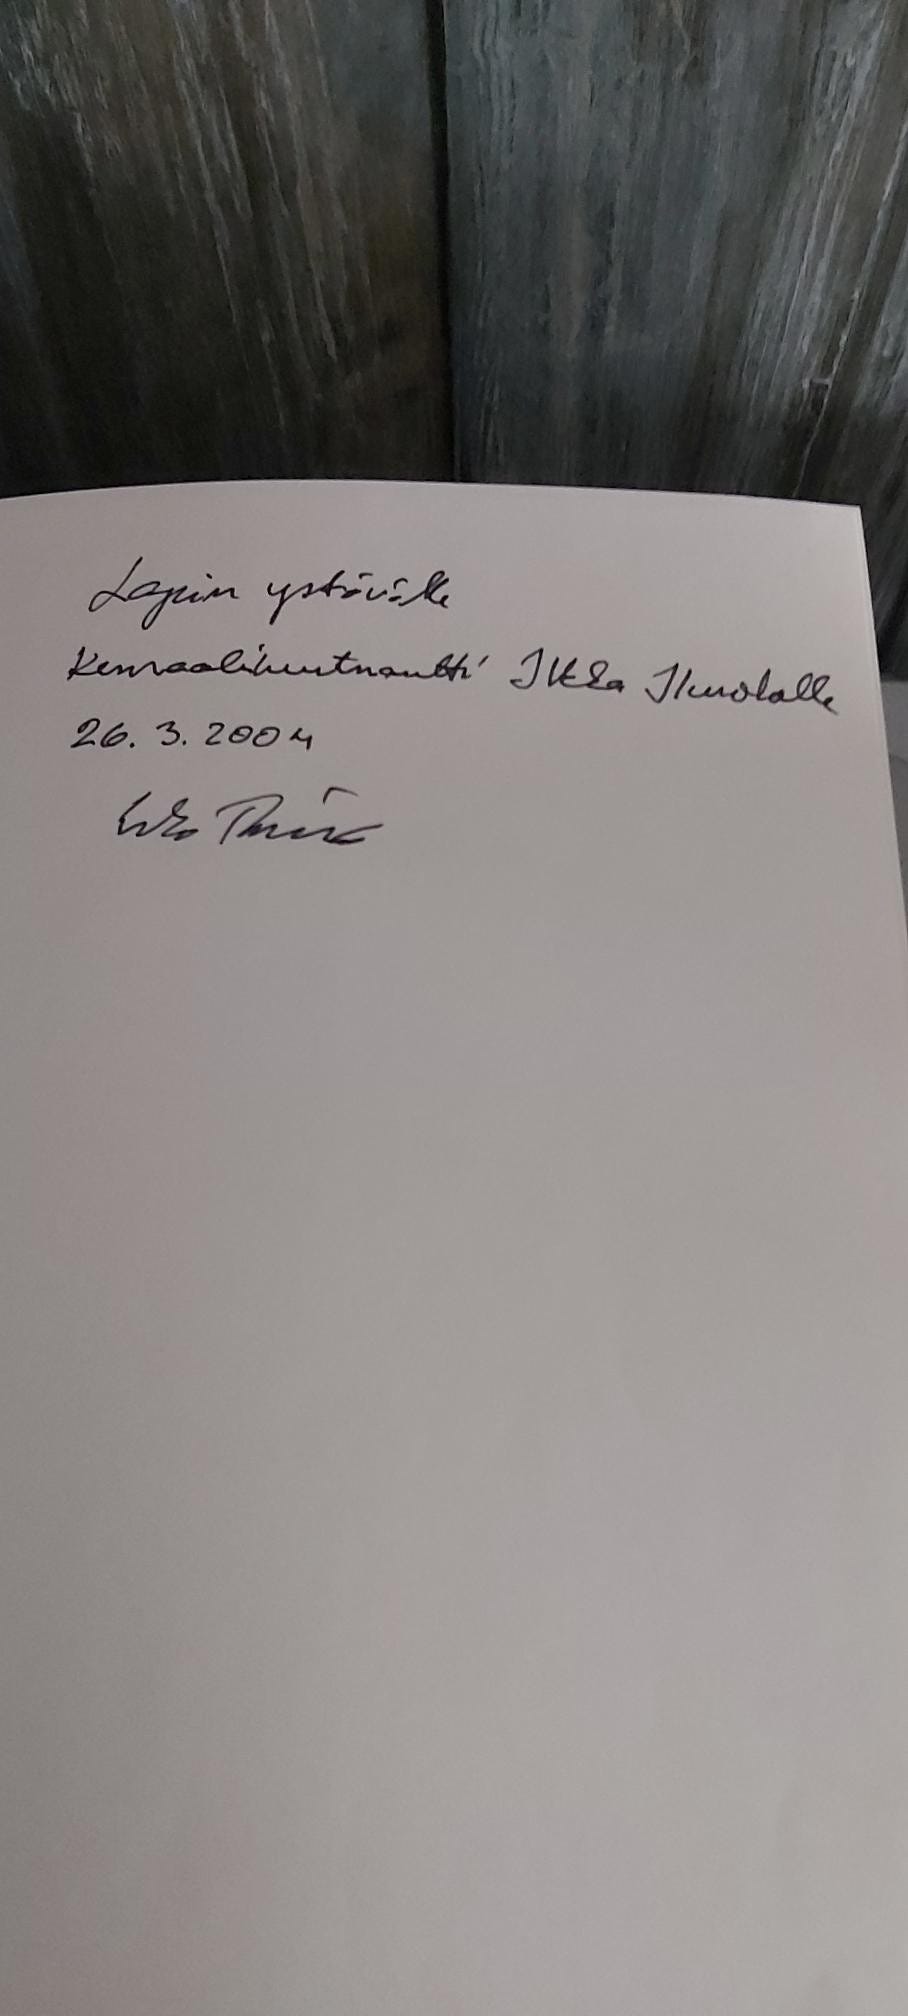 Lapin ystävälle
Kenraaliluutnantti Ilkka Ilmolalle
26.3.2004